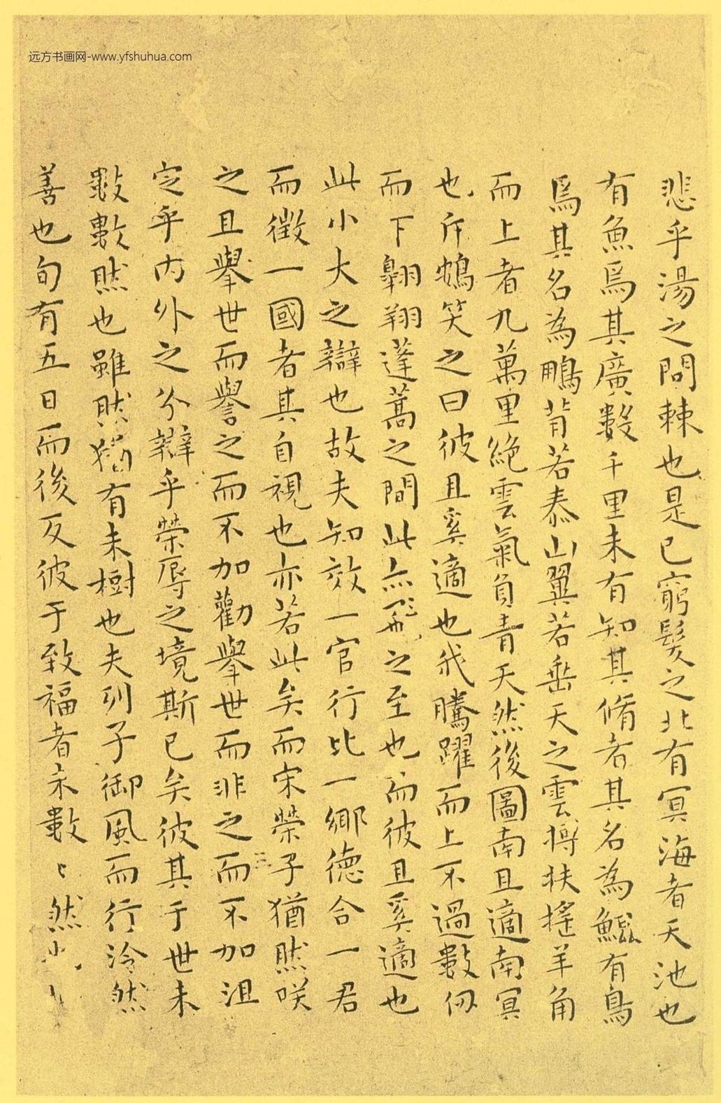 远方书画网-www.yfshuhua.com
悲乎湯之問棘也是已窮髮之北有冥海者天池也
有魚焉其廣數千里未有知其脩者其名為鯤有鳥
焉其名為鵬背若泰山翼若垂天之雲摶扶搖羊角
而上者九萬里絕雲氣負青天然後圖南且適南冥
也斥鴳笑之曰彼且奚適也我騰躍而上不過數仞
而下翱翔蓬蒿之間此亦飛之至也而彼且奚適也
此小大之辯也故夫知效一官行比一鄉德合一君
而徵一國者其自視也亦若此矣而宋榮子猶然咲
之且舉世而譽之而不加勸舉世而非之而不加沮
定乎內外之分辯乎榮辱之境斯已矣彼其于世未
數數然也雖然猶有未樹也夫列子御風而行泠然
善也旬有五日而後反彼于致福者未數〻然